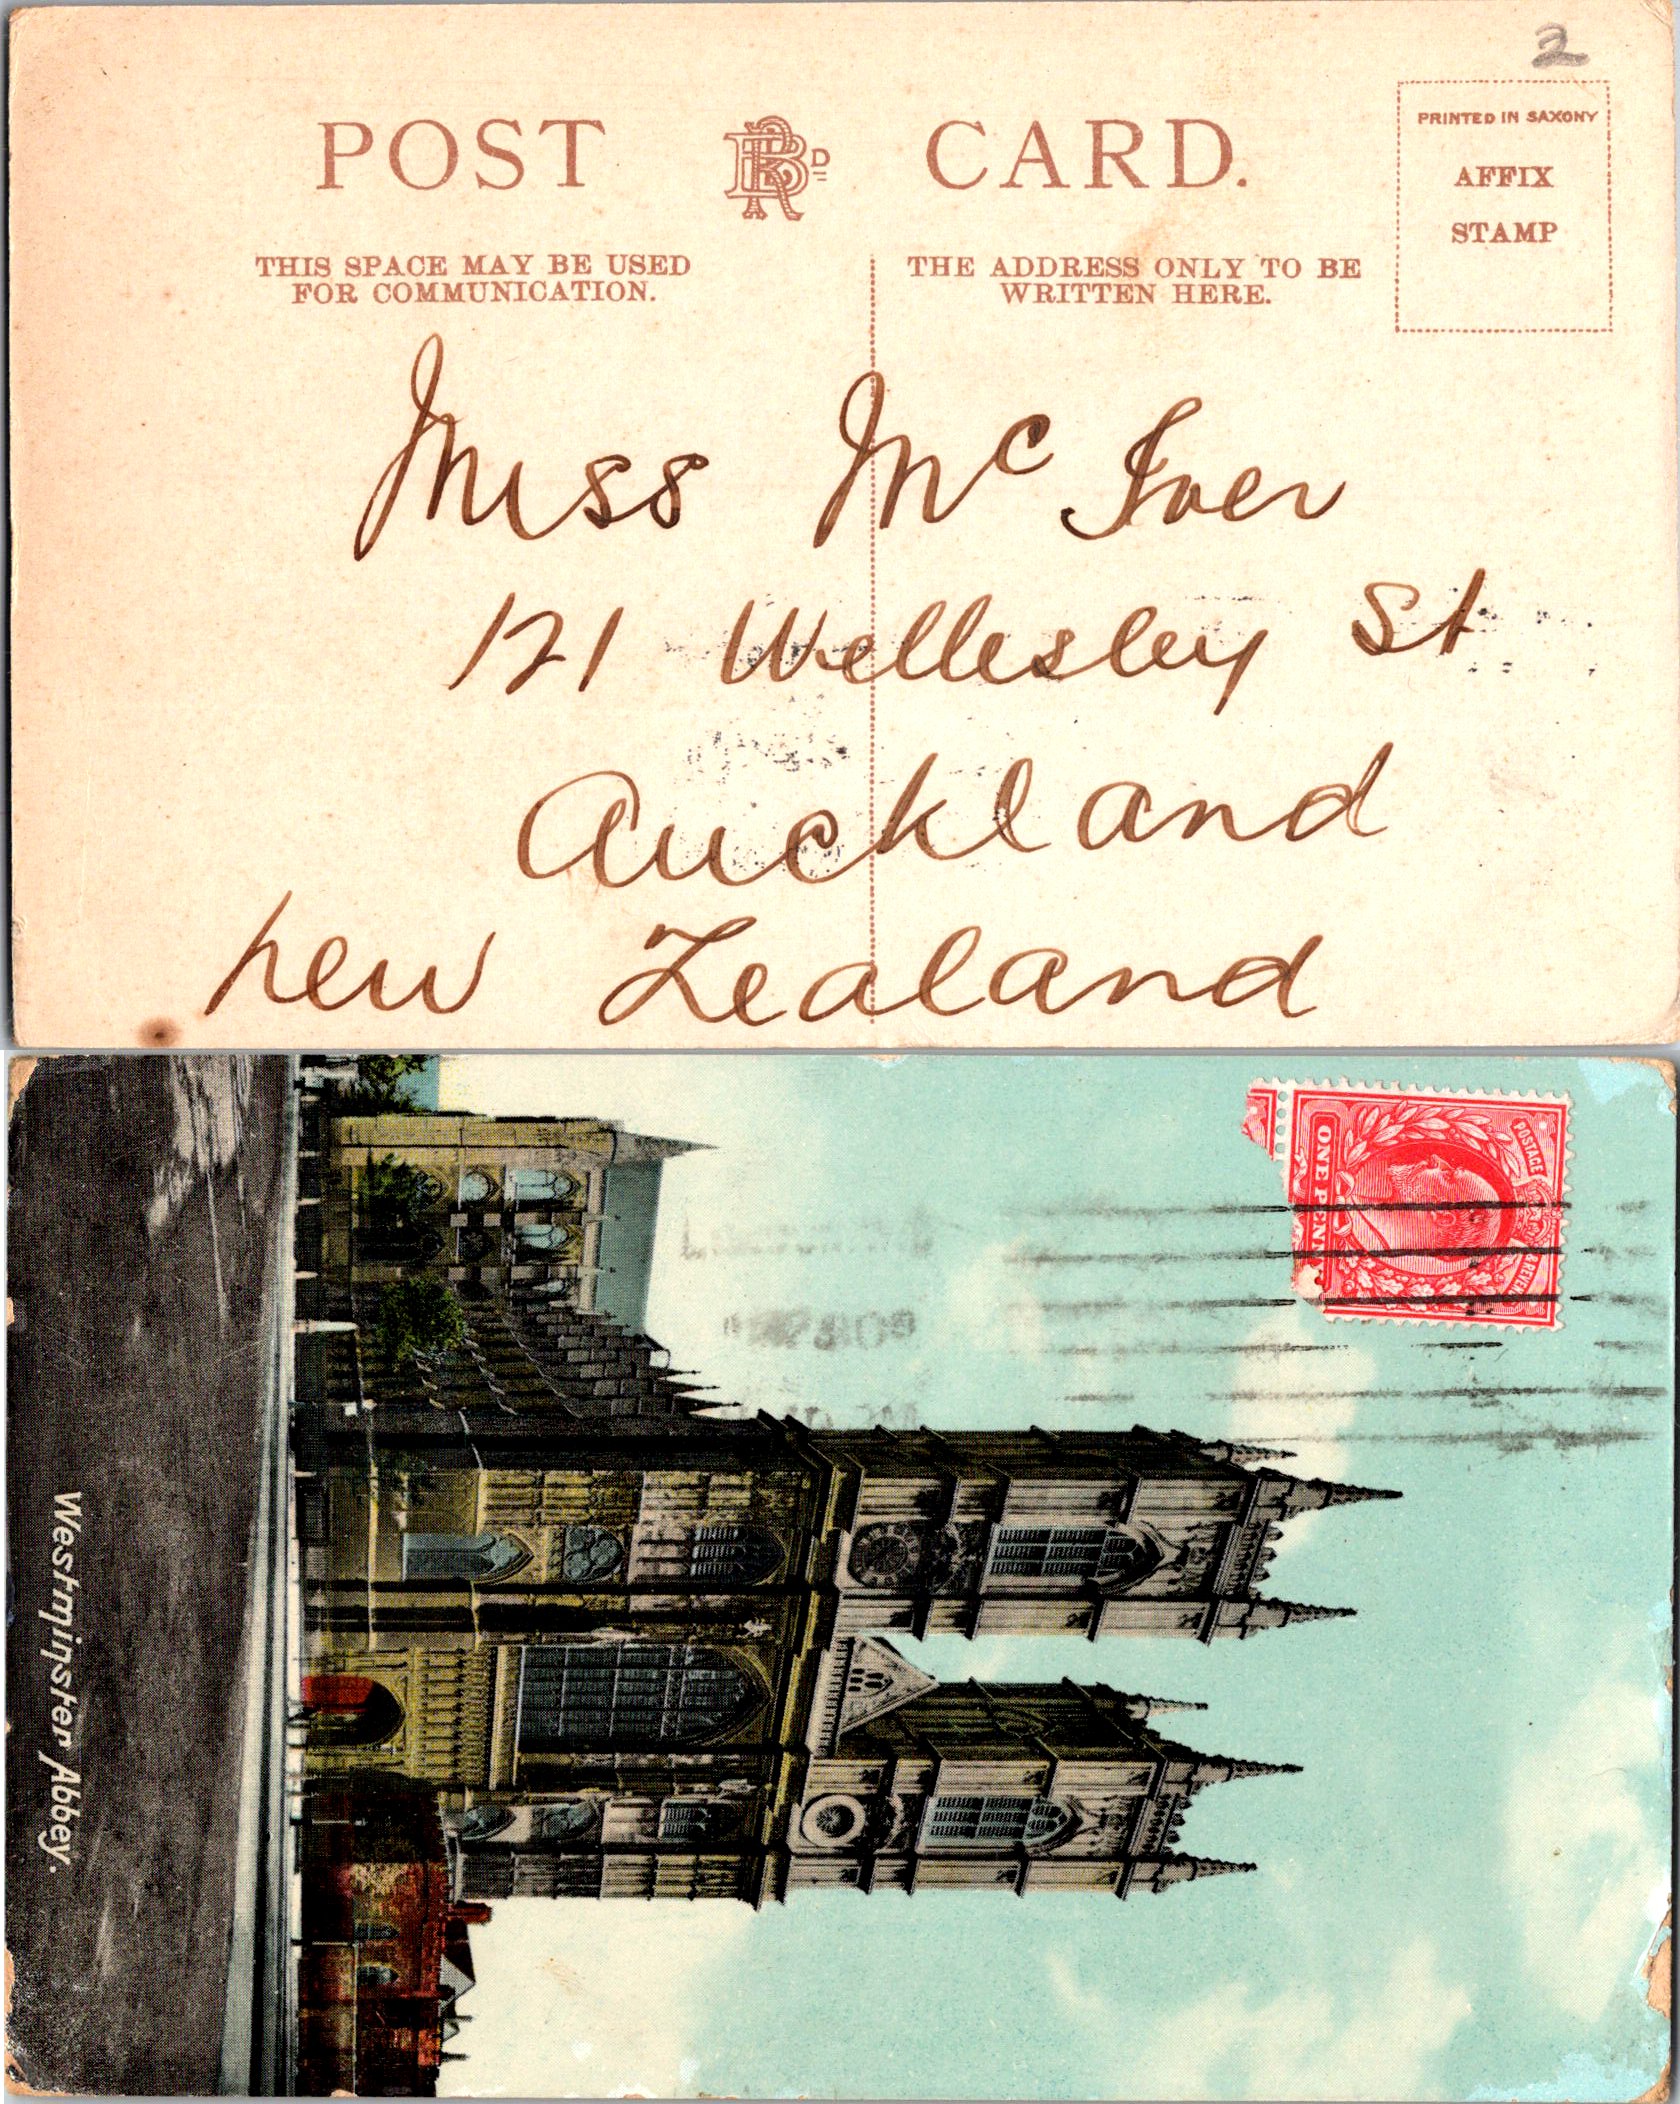 2
POST BRD CARD.
PRINTED IN SAXONY
AFFIX
STAMP
THIS SPACE MAY BE USED
FOR COMMUNICATION.
THE ADDRESS ONLY TO BE
WRITTEN HERE.
Miss Mc Iver
121 Wellesley St
Auckland
New Zealand
POSTAGE
ONE PENNY
Westminster Abbey.